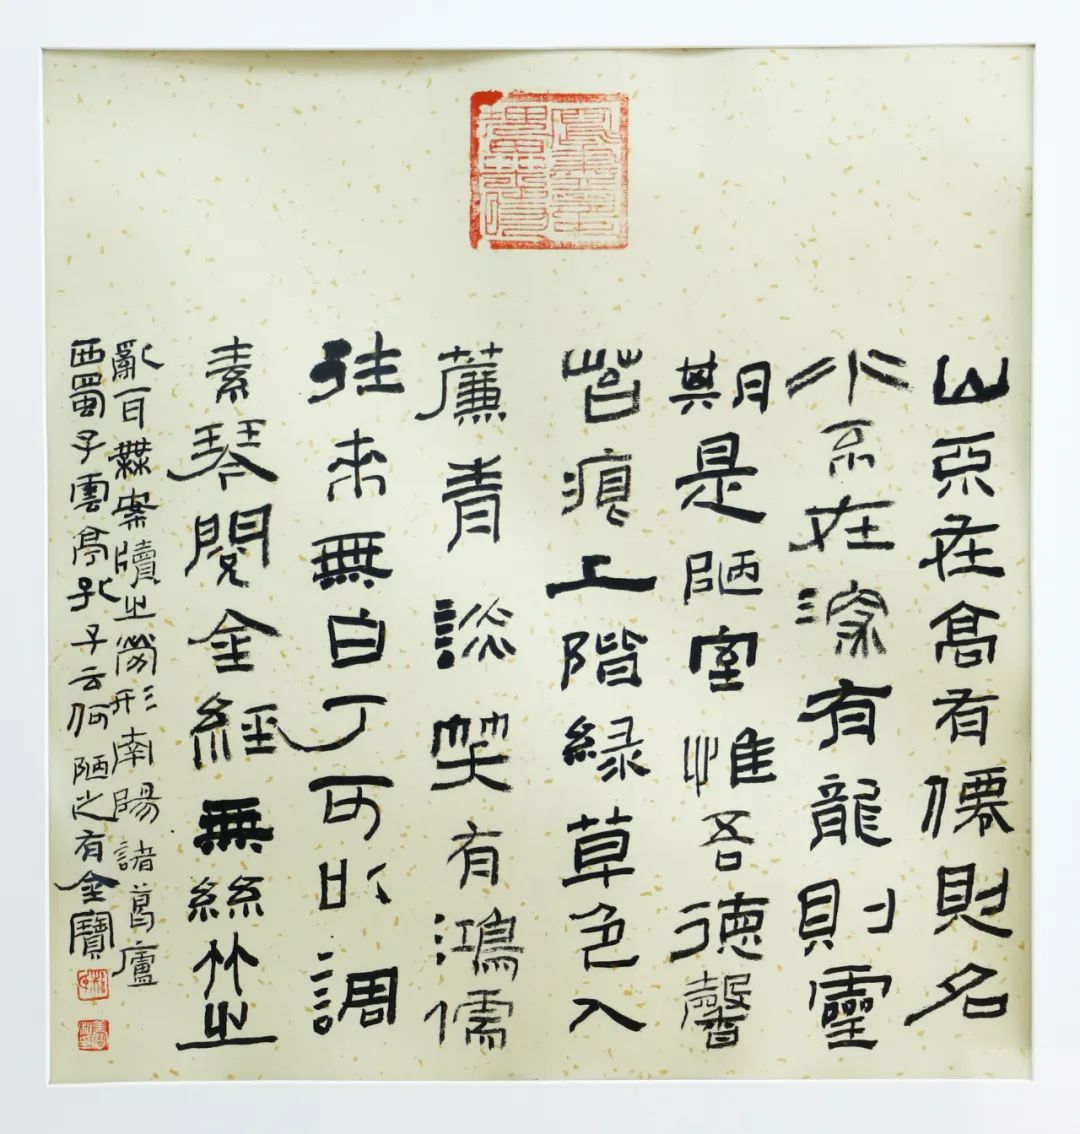 山不在高有僊則名
水不在深有龍則靈
期是陋室惟吾德馨
苔痕上階緑草色入
薕青談笑有鴻儒
往来無白丁可以調
素琴閱金經無絲竹之
亂耳無案牘之勞形南陽諸葛廬
西蜀子雲亭孔子云何陋之有金寶